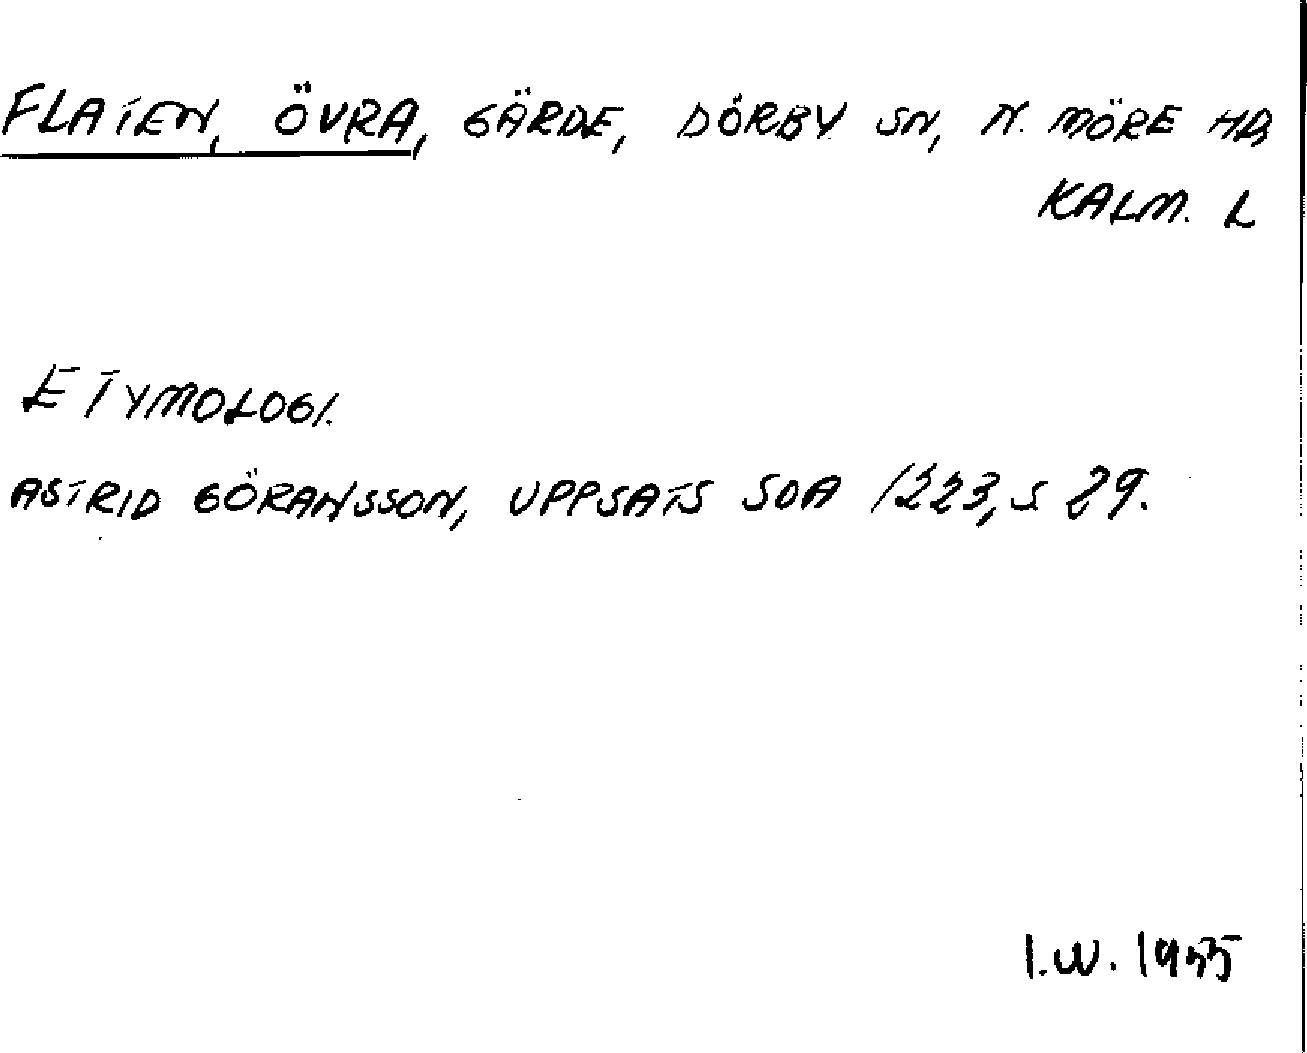 FLATEN, ÖVRA, GÄRDE, DÖRBY SN, N. MÖRE HD,
KALM. L
ETYMOLOGI.
ASTRID GÖRANSSON, UPPSATS SOA 1223, S 29.
I.W. 1955